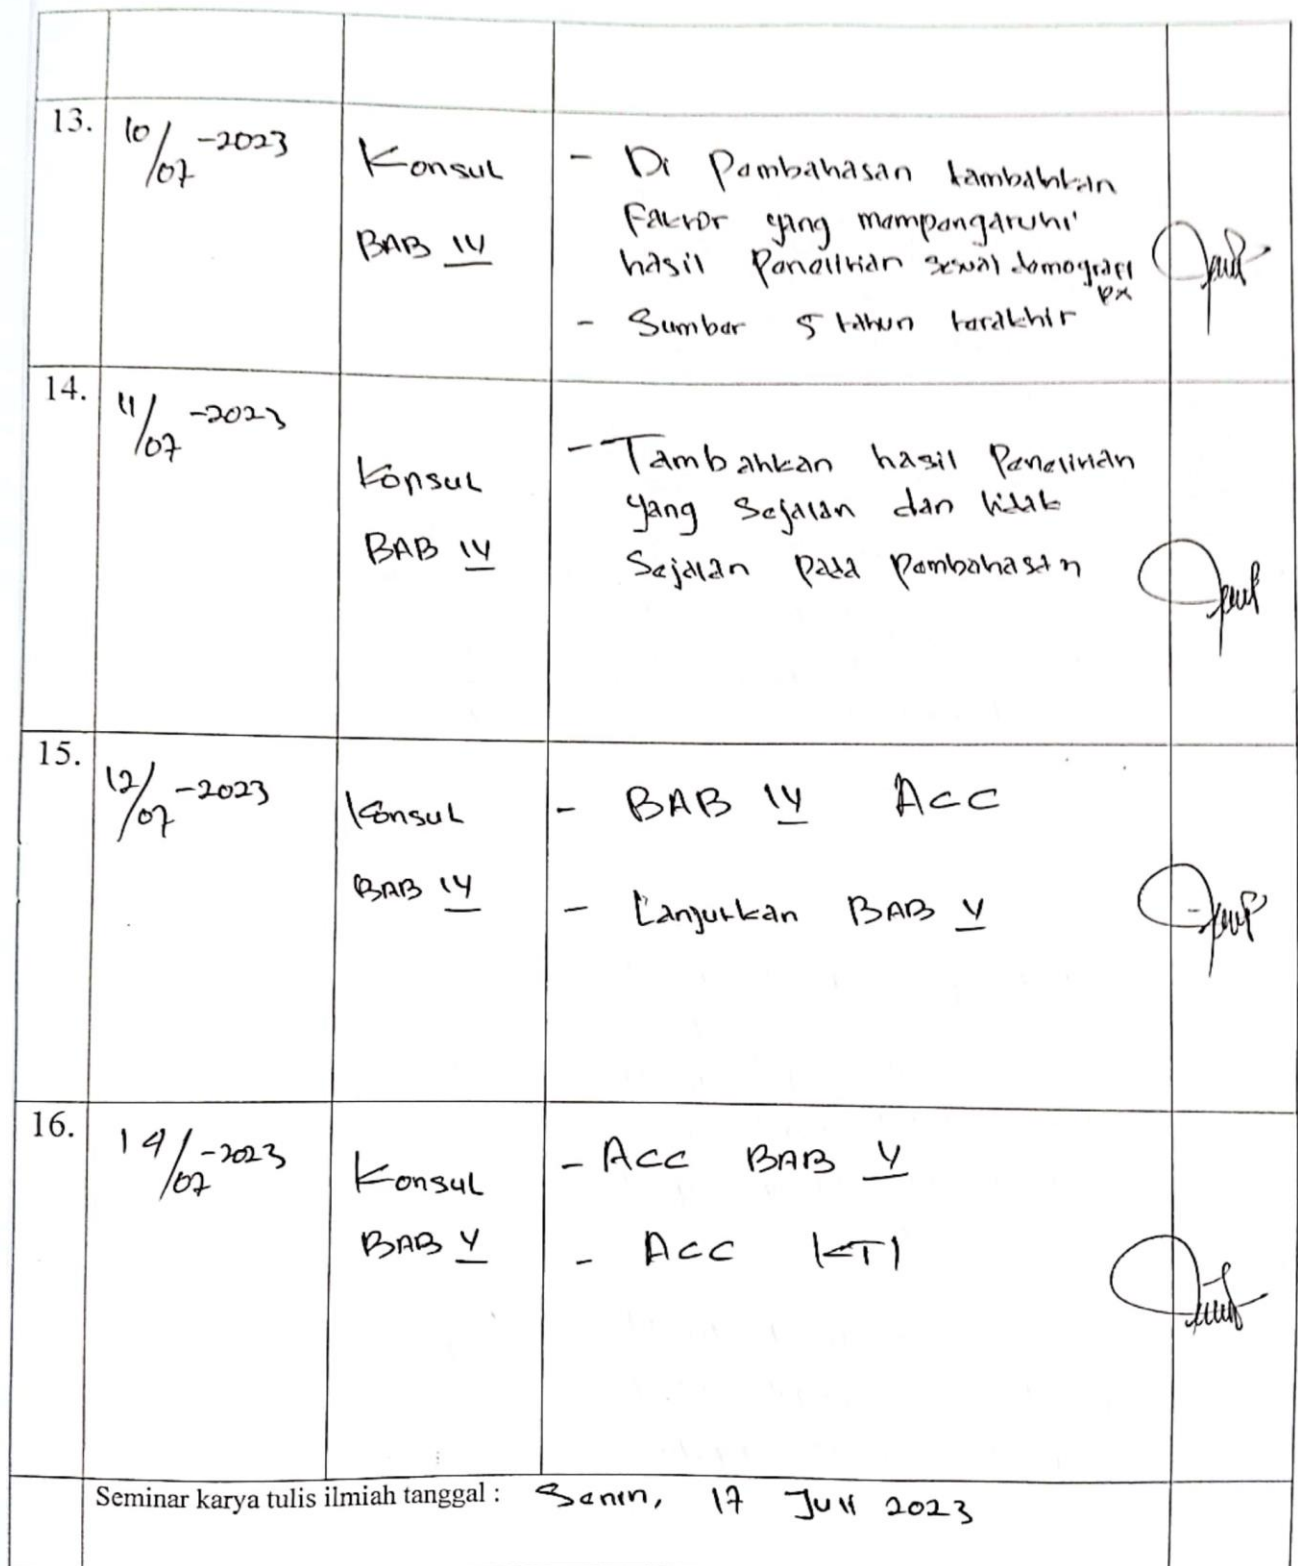 13.
10/07 -2023
Konsul
BAB IV
- Di Pembahasan tambahkan
Faktor yang mempengaruhi
hasil Penelitian sesuai demografi
px
- Sumber 5 tahun terakhir
14.
11/07 -2023
Konsul
BAB IV
- Tambahkan hasil Penelitian
yang Sejalan dan tidak
Sejalan pada Pembahasan
15.
12/07 -2023
Konsul
BAB IV
- BAB IV ACC
- Lanjutkan BAB V
16.
14/07 -2023
Konsul
BAB V
- ACC BAB V
- ACC KTI
Seminar karya tulis ilmiah tanggal : Senin, 17 Juli 2023